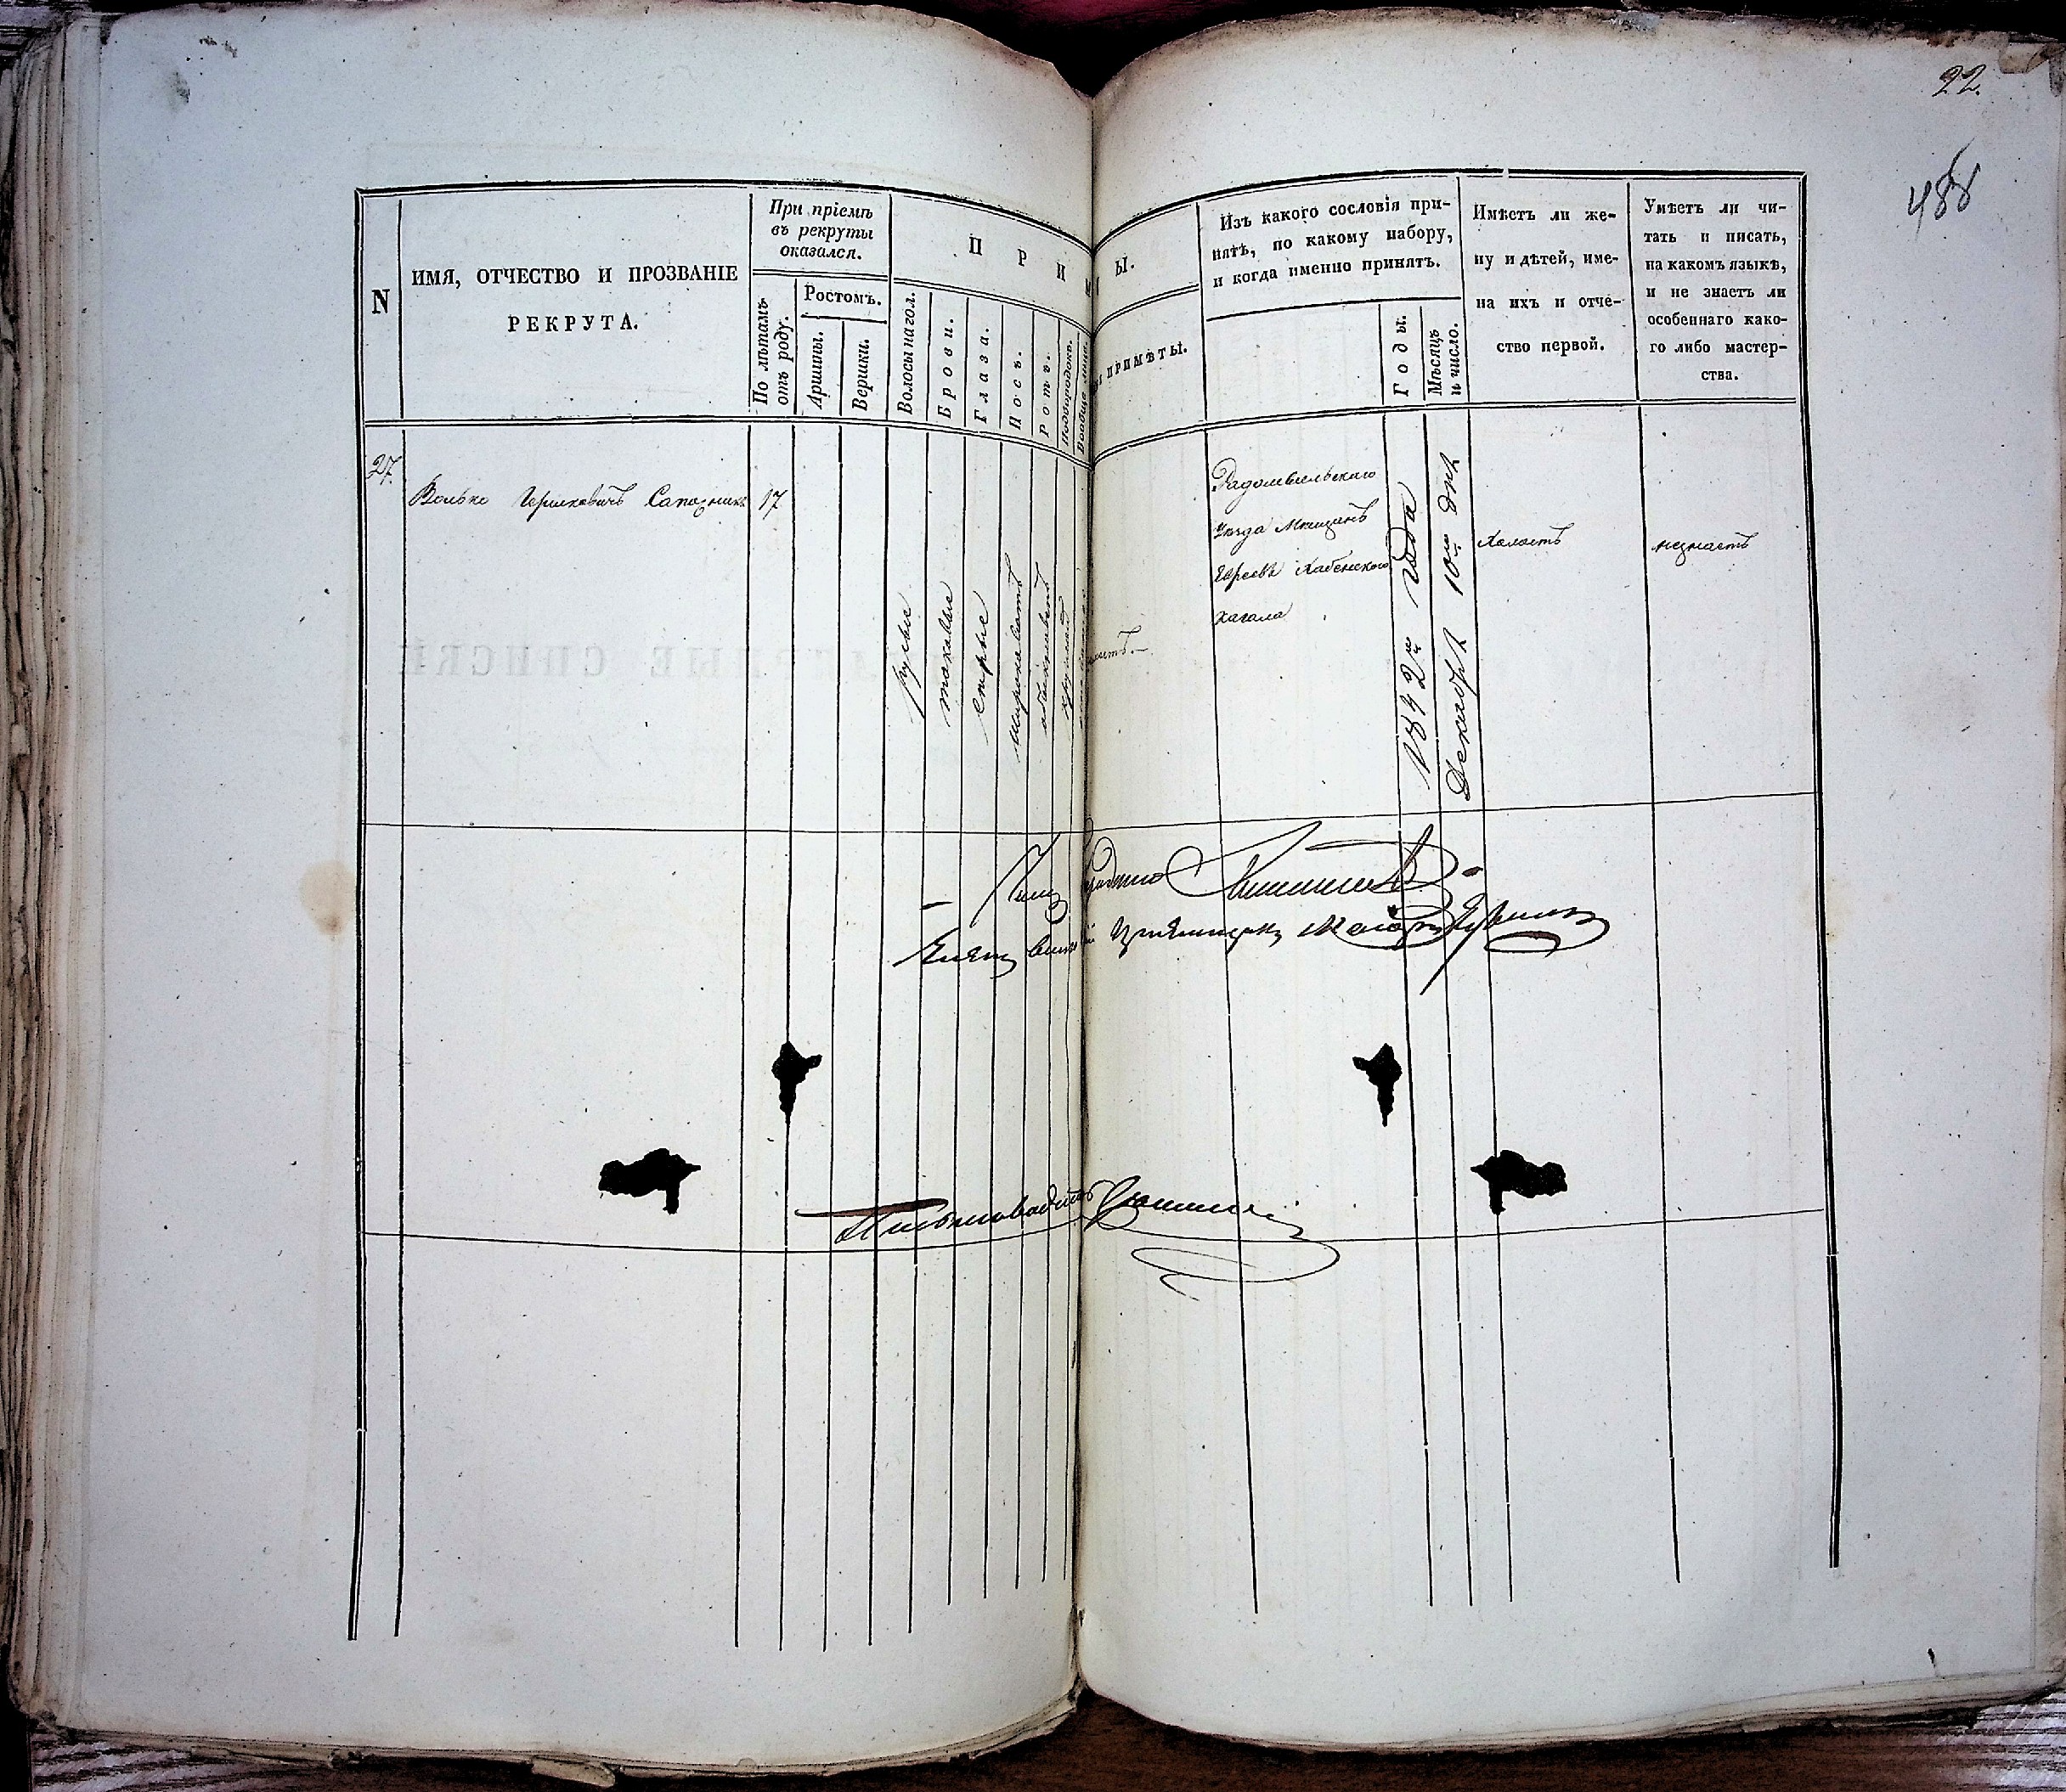 22.
488
N
ИМЯ, ОТЧЕСТВО И ПРОЗВАНІЕ
РЕКРУТА.
При пріемѣ
въ рекруты
оказался.
По лѣтамъ
отъ роду.
Ростомъ.
Аршины.
Вершки.
П Р И Ы.
Волосы на гол.
Брови.
Глаза.
Носъ.
Ротъ.
Подбородокъ.
Вообще лице.
ПРИМѢТЫ.
Изъ какого сословія при-
нятъ, по какому набору,
и когда именно принятъ.
Годы.
Мѣсяцъ
и число.
Имѣетъ ли же-
ну и дѣтей, име-
на ихъ и отче-
ство первой.
Умѣетъ ли чи-
тать и писать,
на какомъ языкѣ,
и не знаетъ ли
особеннаго како-
го либо мастер-
ства.
27.
Волько Сапожникъ 17
русые
таковые
серые
широковатъ
обыкновенъ
Радомысльскаго
Уѣзда Мещанъ
Евреевъ Хабенского
Кагала
1842го года
Декабря 10го дня
Холостъ
незнаетъ